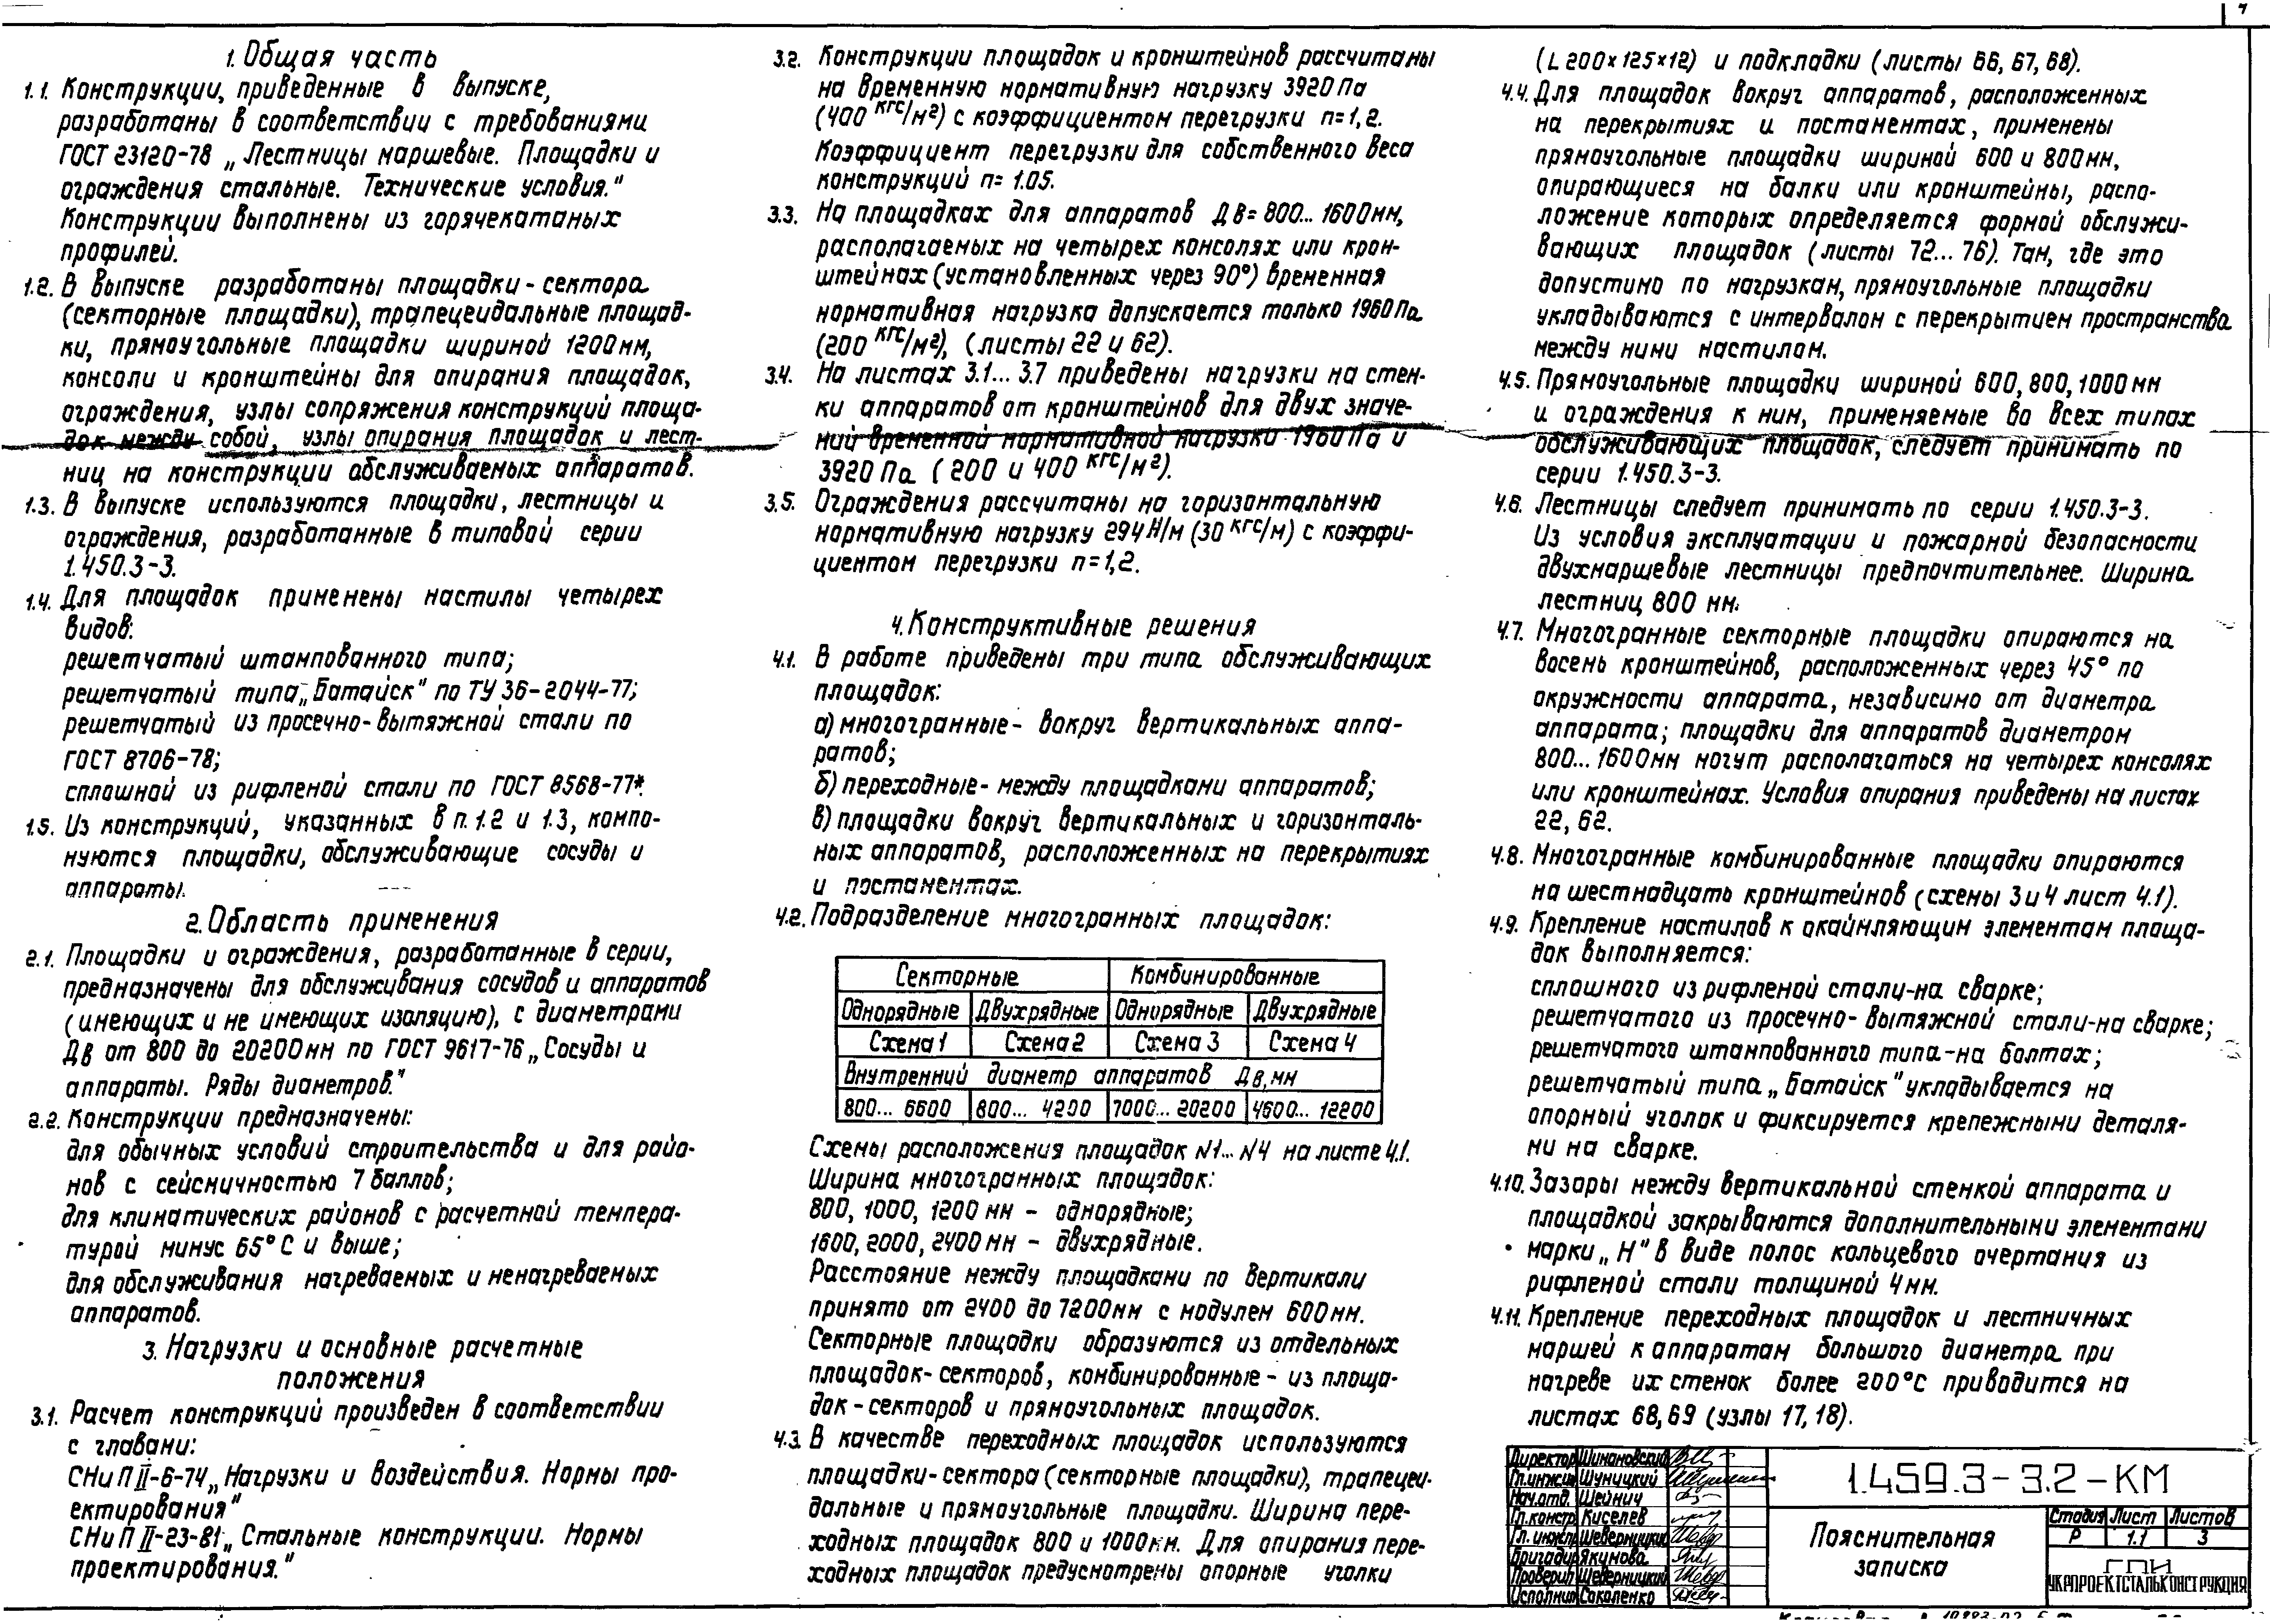 1. Общая часть
1.1. Конструкции, приведенные в выпуске,
разработаны в соответствии с требованиями
ГОСТ 23120-78 „Лестницы маршевые. Площадки и
ограждения стальные. Технические условия."
Конструкции выполнены из горячекатаных
профилей.
1.2. В выпуске разработаны площадки-сектора
(секторные площадки), трапецеидальные площад-
ки, прямоугольные площадки шириной 1200мм,
консоли и кронштейны для опирания площадок,
ограждения, узлы сопряжения конструкций площа-
док между собой, узлы опирания площадок и лест-
ниц на конструкции обслуживаемых аппаратов.
1.3. В выпуске используются площадки, лестницы и
ограждения, разработанные в типовой серии
1.450.3-3.
1.4. Для площадок применены настилы четырех
видов:
решетчатый штампованного типа;
решетчатый типа „Батайск" по ТУ 36-2044-77;
решетчатый из просечно-вытяжной стали по
ГОСТ 8706-78;
сплошной из рифленой стали по ГОСТ 8568-77*.
1.5. Из конструкций, указанных в п. 1.2 и 1.3, компо-
нуются площадки, обслуживающие сосуды и
аппараты.
2. Область применения
2.1. Площадки и ограждения, разработанные в серии,
предназначены для обслуживания сосудов и аппаратов
(имеющих и не имеющих изоляцию), с диаметрами
Дв от 800 до 20200мм по ГОСТ 9617-76 „Сосуды и
аппараты. Ряды диаметров."
2.2. Конструкции предназначены:
для обычных условий строительства и для райо-
нов с сейсмичностью 7 баллов;
для климатических районов с расчетной темпера-
турой минус 65°С и выше;
для обслуживания нагреваемых и ненагреваемых
аппаратов.
3. Нагрузки и основные расчетные
положения
3.1. Расчет конструкций произведен в соответствии
с главами:
СНиП II-6-74 „Нагрузки и воздействия. Нормы про-
ектирования"
СНиП II-23-81 „Стальные конструкции. Нормы
проектирования."
3.2. Конструкции площадок и кронштейнов рассчитаны
на временную нормативную нагрузку 3920 Па
(400 кгс/м²) с коэффициентом перегрузки n=1,2.
Коэффициент перегрузки для собственного веса
конструкций n= 1.05.
3.3. На площадках для аппаратов Дв=800... 1600мм,
располагаемых на четырех консолях или крон-
штейнах (установленных через 90°) временная
нормативная нагрузка допускается только 1960Па
(200 кгс/м²), (листы 22 и 62).
3.4. На листах 3.1... 3.7 приведены нагрузки на стен-
ки аппаратов от кронштейнов для двух значе-
ний временной нормативной нагрузки 1960 Па и
3920 Па (200 и 400 кгс/м²).
3.5. Ограждения рассчитаны на горизонтальную
нормативную нагрузку 294 Н/м (30 кгс/м) с коэффи-
циентом перегрузки n=1,2.
4. Конструктивные решения
4.1. В работе приведены три типа обслуживающих
площадок:
а) многогранные - вокруг вертикальных аппа-
ратов;
б) переходные - между площадками аппаратов;
в) площадки вокруг вертикальных и горизонталь-
ных аппаратов, расположенных на перекрытиях
и постаментах.
4.2. Подразделение многогранных площадок:
Секторные Комбинированные
Однорядные Двухрядные Однорядные Двухрядные
Схема 1 Схема 2 Схема 3 Схема 4
Внутренний диаметр аппаратов Дв, мм
800... 6600 800... 4200 7000... 20200 4600... 12200
Схемы расположения площадок N1... N4 на листе 4.1.
Ширина многогранных площадок:
800, 1000, 1200 мм - однорядные;
1600, 2000, 2400 мм - двухрядные.
Расстояние между площадками по вертикали
принято от 2400 до 7200мм с модулем 600мм.
Секторные площадки образуются из отдельных
площадок-секторов, комбинированные - из площа-
док-секторов и прямоугольных площадок.
4.3 В качестве переходных площадок используются
площадки-сектора (секторные площадки), трапецеи-
дальные и прямоугольные площадки. Ширина пере-
ходных площадок 800 и 1000мм. Для опирания пере-
ходных площадок предусмотрены опорные уголки
(L 200×125×12) и подкладки (листы 66, 67, 68).
4.4. Для площадок вокруг аппаратов, расположенных
на перекрытиях и постаментах, применены
прямоугольные площадки шириной 600 и 800мм,
опирающиеся на балки или кронштейны, распо-
ложение которых определяется формой обслужи-
вающих площадок (листы 72... 76). Там, где это
допустимо по нагрузкам, прямоугольные площадки
укладываются с интервалом с перекрытием пространства
между ними настилом.
4.5. Прямоугольные площадки шириной 600, 800, 1000мм
и ограждения к ним, применяемые во всех типах
обслуживающих площадок, следует принимать по
серии 1.450.3-3.
4.6. Лестницы следует принимать по серии 1.450.3-3.
Из условия эксплуатации и пожарной безопасности
двухмаршевые лестницы предпочтительнее. Ширина
лестниц 800 мм.
4.7. Многогранные секторные площадки опираются на
восемь кронштейнов, расположенных через 45° по
окружности аппарата, независимо от диаметра
аппарата; площадки для аппаратов диаметром
800... 1600мм могут располагаться на четырех консолях
или кронштейнах. Условия опирания приведены на листах
22, 62.
4.8. Многогранные комбинированные площадки опираются
на шестнадцать кронштейнов (схемы 3 и 4 лист 4.1).
4.9. Крепление настилов к окаймляющим элементам площа-
док выполняется:
сплошного из рифленой стали-на сварке;
решетчатого из просечно-вытяжной стали-на сварке;
решетчатого штампованного типа-на болтах;
решетчатый типа „Батайск" укладывается на
опорный уголок и фиксируется крепежными деталя-
ми на сварке.
4.10. Зазоры между вертикальной стенкой аппарата и
площадкой закрываются дополнительными элементами
марки „Н" в виде полос кольцевого очертания из
рифленой стали толщиной 4мм.
4.11. Крепление переходных площадок и лестничных
маршей к аппаратам большого диаметра при
нагреве их стенок более 200°С приводится на
листах 68, 69 (узлы 17, 18).
Директор Шимановский
Гл.инж.ин Шуницкий
Нач.отд. Шейнич
Гл.констр Киселев
Гл. инж.пр Шеверницкий
Бригадир Якимова
Проверил Шеверницкий
Исполнил Соколенко
1.459.3-3.2-КМ
Пояснительная
записка
Стадия Лист Листов
Р 1.1 3
ГПИ
УКРПРОЕКТСТАЛЬКОНСТРУКЦИЯ